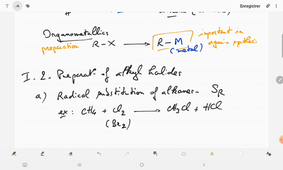 Enregistrer
Organometallics
preparation R-X → R-M important in
(metal) organ. synthesis
I. 2. Preparat° of alkyl halides
a) Radical substitution of alkanes - SR
ex: CH4 + Cl2 → CH3Cl + HCl
(Br2)